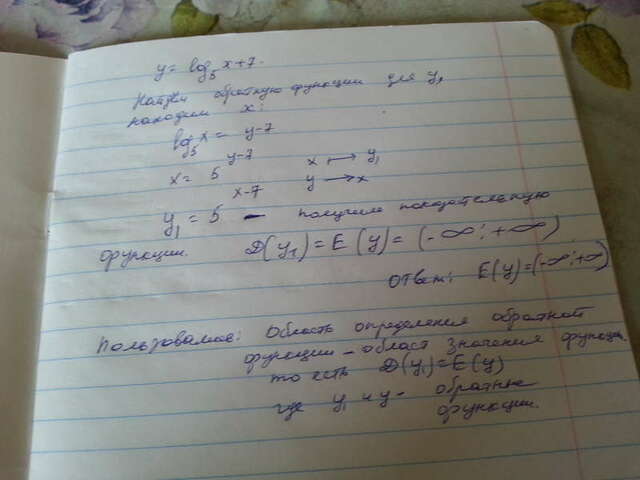 y = log₅x+7.
Найдём обратную функцию для y,
находим x:
log₅x = y-7
x = 5^(y-7) x ⟼ y₁
y₁ = 5^(x-7) y ⟶ x
– получили показательную
функции. D(y₁) = E(y) = (-∞; +∞)
Ответ: E(y)=(-∞;+∞)
Пользовались: Область определения обратной
функции – област значения функции
то есть D(y₁)=E(y)
где y₁ и y – обратные
функции.